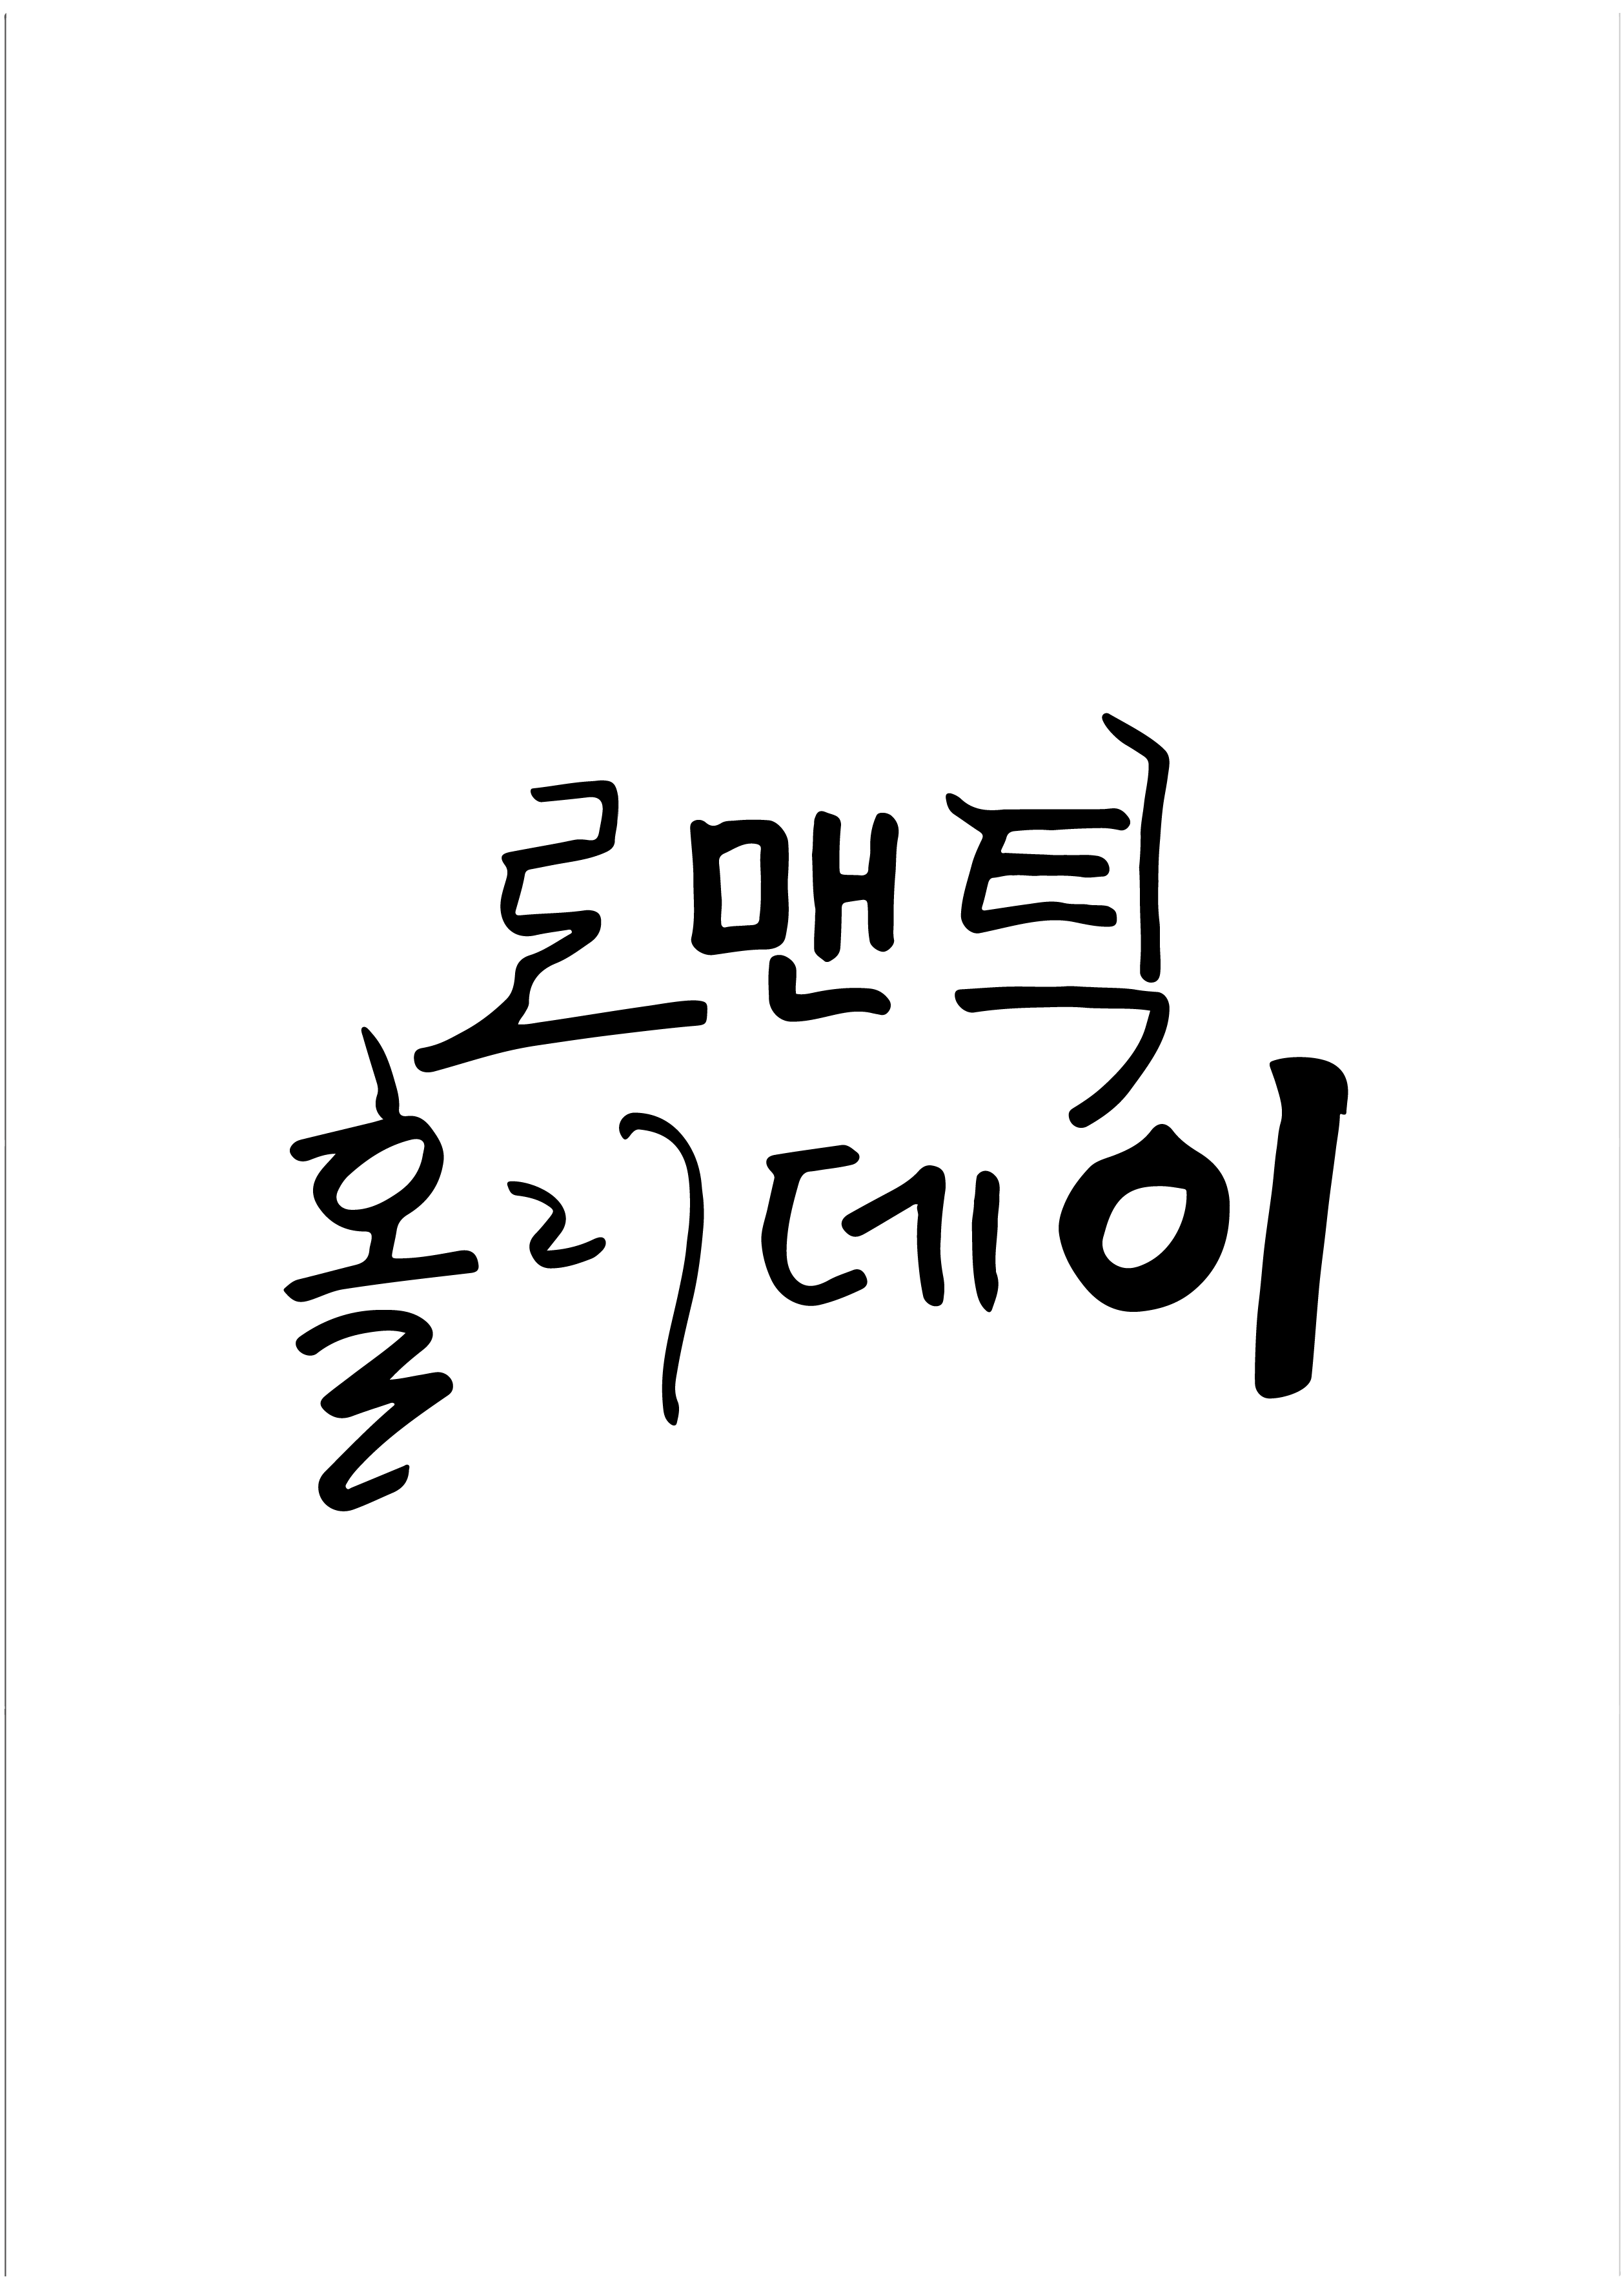 로맨틱
홀리데이